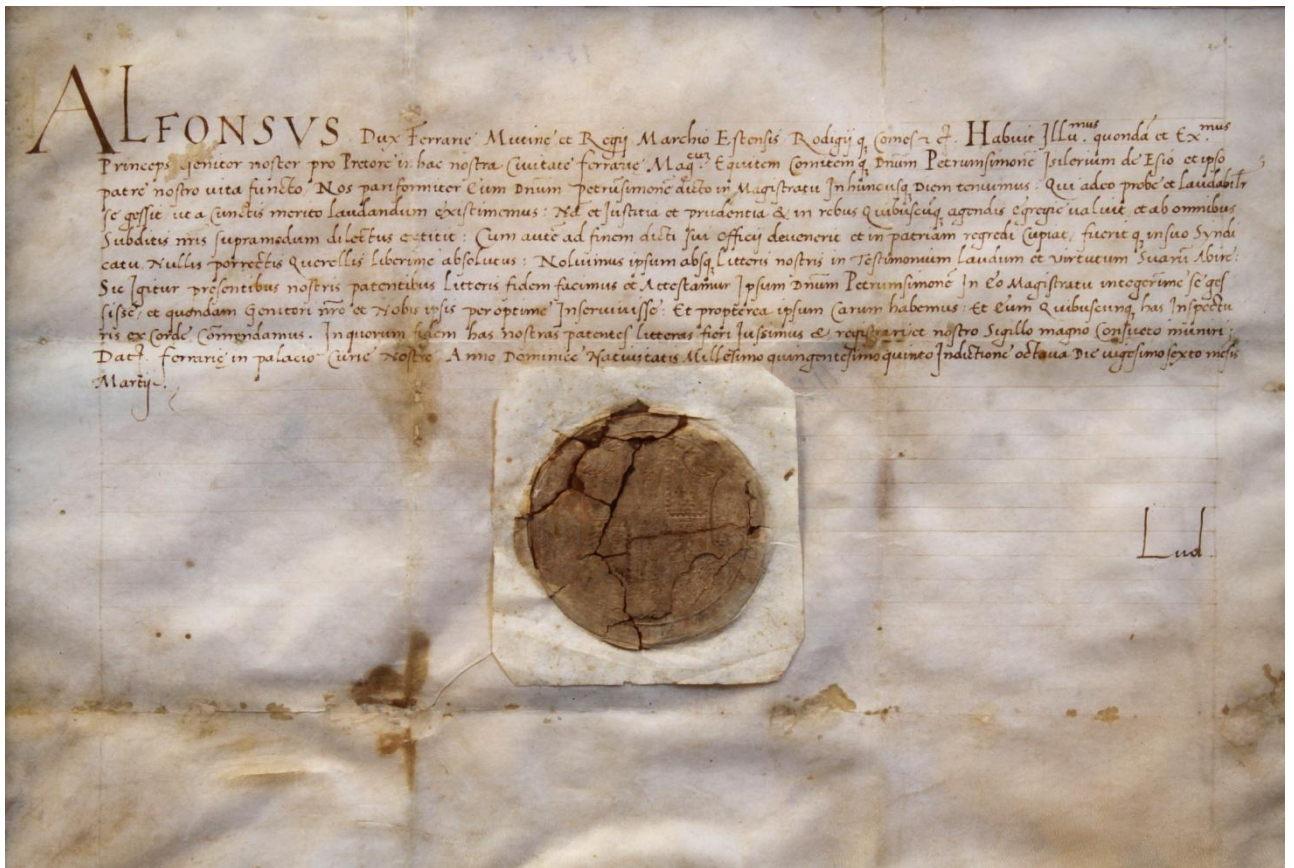 ALFONSVS Dux Ferrarie Mutine et Regij Marchio Estensis Rodigijq Comes Habuit Illu.mus quondā et Ex.mus
Princeps genitor noster pro Pretore in hac nostra Civitate ferrarie Equitem Comitemq Dnum Petrumsimonē de Esio et ipso
patre nostro vita functo. Nos pariformiter Eum Dnum petrūsimonē dicto in Magistratu In huncusq Diem tenuimus. Qui adeo probe et laudabilr
se gessit ut a Cunctis merito laudandum existimemus: Nā et Justitia et prudentia & in rebus Quibuscunq agendis egregie valuit et ab omnibus
Subditis nris supramodum dilectus extitit: Cum autē ad finem dicti sui officij devenerit et in patriam regredi Cupiat, fuerit q in suo Syndi
catu, Nullis porrectis Querellis liberime absolutus: Noluimus ipsum absq Litteris nostris in Testimonium laudum et virtutum Suarū Abire:
Sic Igitur presentibus nostris patentibus Litteris fidem facimus et Attestamur Ipsum Dnum Petrumsimonē In Eo Magistratu integerime se ges
sisse, et quondam Genitori nrō et Nobis ipsis peroptime Inservivisse: Et propterea ipsum Carum habemus: Et Eum Quibuscunq has Inspectu
ris ex Corde Comendamus. In quorum fidem has nostras patentes litteras fieri Jussimus & registrari et nostro Sigillo magno Consueto muniri:
Dat. Ferrarie in palacio Curie Nostre Anno Dominice Nativitatis Millesimo quingentesimo quinto Indictione octava Die vigesimo sexto mēsis
Martij.
Lud.